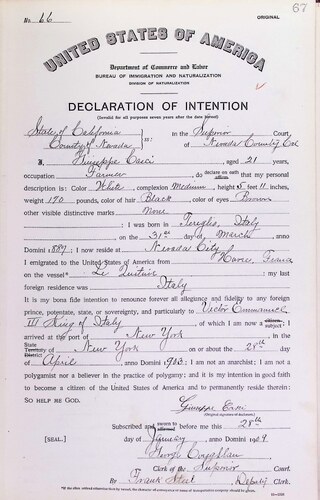 No. 66
ORIGINAL
67
UNITED STATES OF AMERICA
Department of Commerce and Labor
BUREAU OF IMMIGRATION AND NATURALIZATION
DIVISION OF NATURALIZATION
DECLARATION OF INTENTION
(Invalid for all purposes seven years after the date hereof)
State of California
County of Nevada ss: In the Superior Court,
of Nevada County Cal
I, Giuseppe, aged 21 years,
occupation Farmer, do declare on oath that my personal
description is: Color White, complexion Medium, height 5 feet 11 inches,
weight 190 pounds, color of hair Black, color of eyes Brown
other visible distinctive marks None
I was born in Italy
on the 31st day of March, anno
Domini 1887; I now reside at Nevada City
I emigrated to the United States of America from Havre, France
on the vessel* ; my last
foreign residence was Italy
It is my bona fide intention to renounce forever all allegiance and fidelity to any foreign
prince, potentate, state, or sovereignty, and particularly to Victor Emmanuel
III King of Italy, of which I am now a subject; I
arrived at the port of New York, in the
State Territory District of New York on or about the 28th day
of April, anno Domini 1903; I am not an anarchist; I am not a
polygamist nor a believer in the practice of polygamy; and it is my intention in good faith
to become a citizen of the United States of America and to permanently reside therein:
SO HELP ME GOD.
Giuseppe
(Original signature of declarant.)
Subscribed and sworn to before me this 28th
[SEAL.] day of January, anno Domini 1909
George
Clerk of the Superior Court.
By Frank Steel, Deputy Clerk.